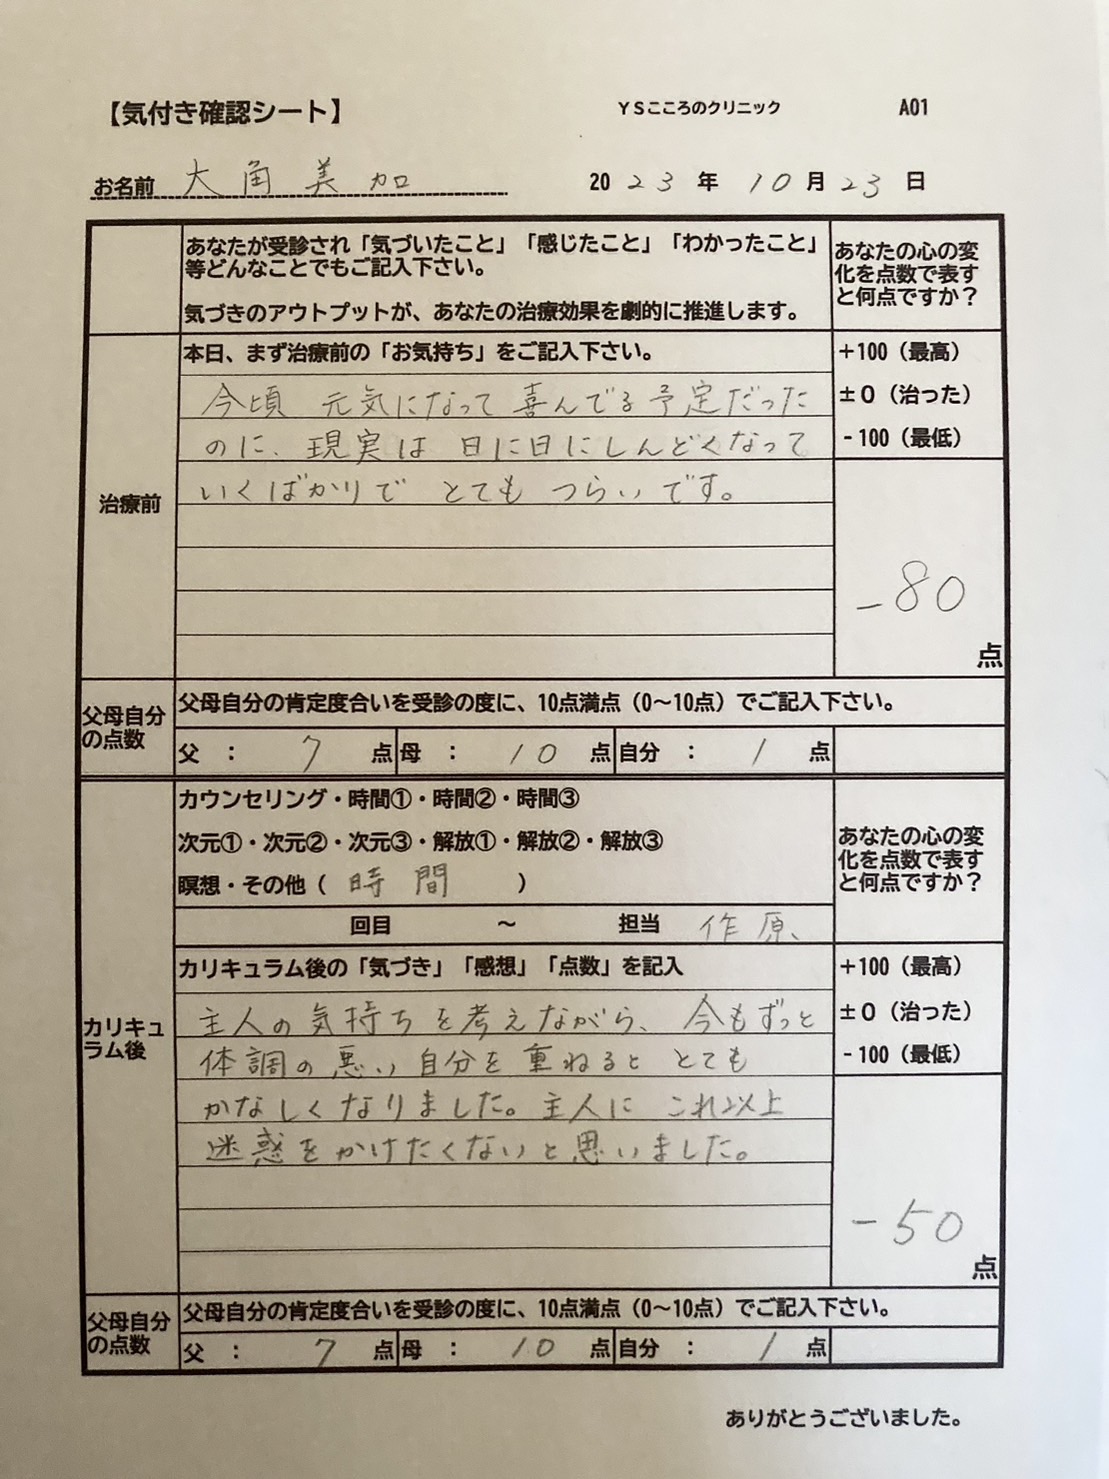 【気付き確認シート】 YSこころのクリニック A01
お名前 大角 美加 2023年 10月23日
あなたが受診され「気づいたこと」「感じたこと」「わかったこと」
等どんなことでもご記入下さい。
気づきのアウトプットが、あなたの治療効果を劇的に推進します。
あなたの心の変
化を点数で表す
と何点ですか？
治療前
本日、まず治療前の「お気持ち」をご記入下さい。
今頃 元気になって 喜んでる予定だった
のに、現実は 日に日にしんどくなって
いくばかりで とても つらいです。
+100（最高）
±0（治った）
-100（最低）
-80
点
父母自分
の点数
父母自分の肯定度合いを受診の度に、10点満点（0～10点）でご記入下さい。
父 ： 7 点 母 ： 10 点 自分 ： 1 点
カリキュ
ラム後
カウンセリング・時間①・時間②・時間③
次元①・次元②・次元③・解放①・解放②・解放③
瞑想・その他（ 時間 ）
回目 ～ 担当 作原、
あなたの心の変
化を点数で表す
と何点ですか？
カリキュラム後の「気づき」「感想」「点数」を記入
主人の気持ちを考えながら、今もずっと
体調の悪い自分を重ねると とても
かなしくなりました。主人に これ以上
迷惑をかけたくないと思いました。
+100（最高）
±0（治った）
-100（最低）
-50
点
父母自分
の点数
父母自分の肯定度合いを受診の度に、10点満点（0～10点）でご記入下さい。
父 ： 7 点 母 ： 10 点 自分 ： 1 点
ありがとうございました。